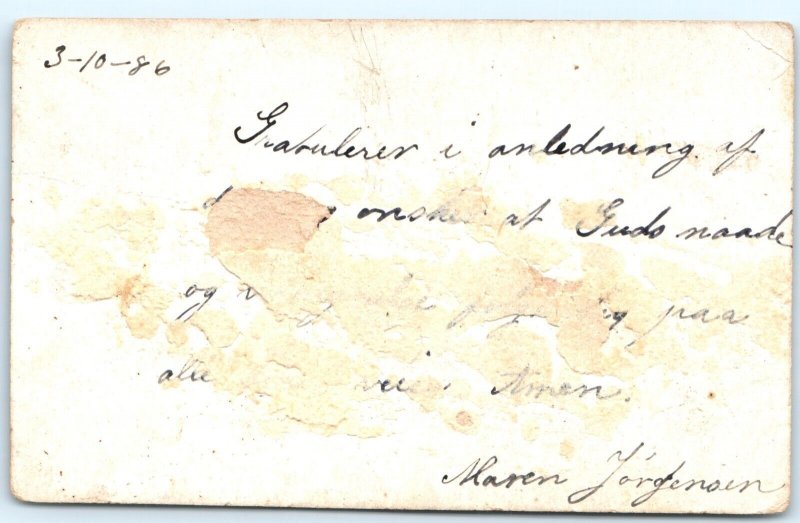 3-10-86
Gratulerer i anledning af
ønsker at Guds naade
og følge dig paa
alle veie. Amen.
Maren Jörgensen